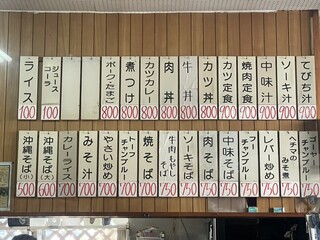 てびち汁 900
ソーキ汁 900
中味汁 900
焼肉定食 900
カツ定食 900
カツ丼 800
牛丼 800
肉丼 800
カツカレー 800
煮つけ 800
ポークたまご 800
ジュース
コーラ 100
ライス 100
ゴーヤー
チャンプルー 750
ヘチマの
みそ煮 750
レバー炒め 750
フー
チャンプルー 750
中味そば 750
肉そば 750
ソーキそば 750
牛肉もやし
そば 750
焼そば 700
トーフ
チャンプルー 700
やさい炒め 700
みそ汁 700
カレーライス 700
沖縄そば(大) 600
沖縄そば(小) 500